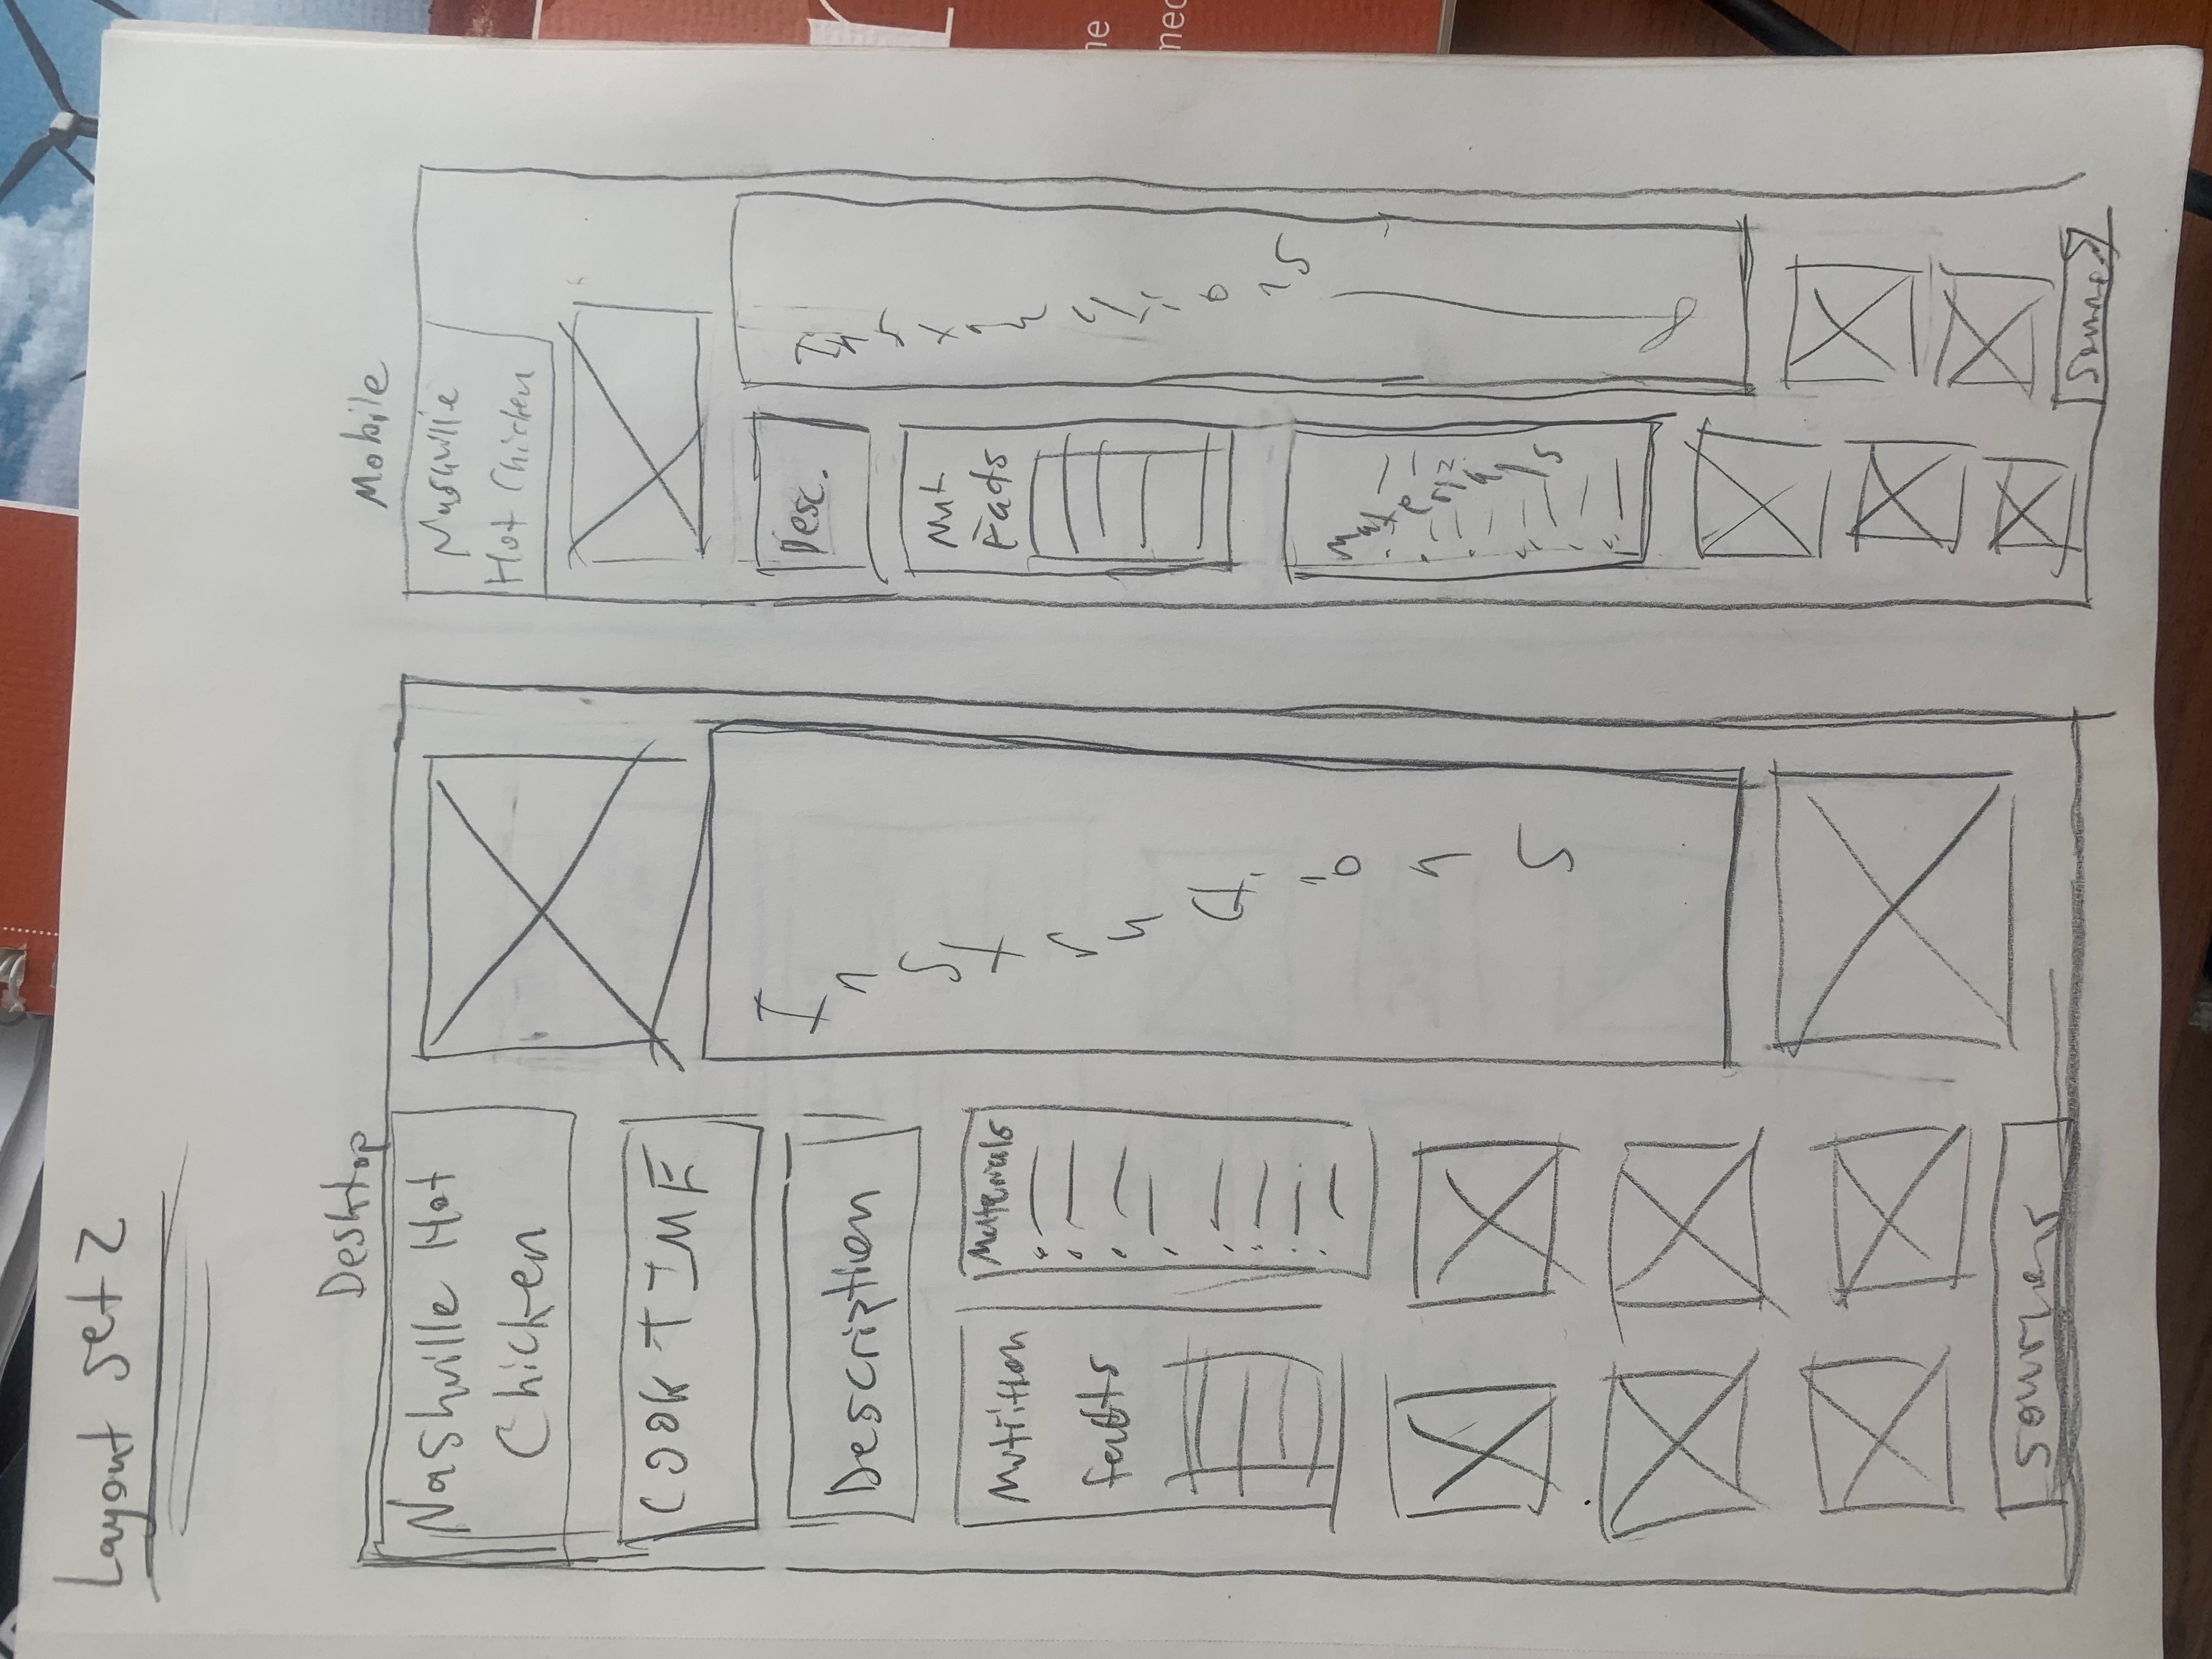 Layout Set 2
Desktop
Nashville Hot
Chicken
COOK TIME
Description
Nutrition
facts
Materials
Instructions
Sources
Mobile
Hot Chicken
Desc.
Nut
Facts
Materials
Instructions
ne
med